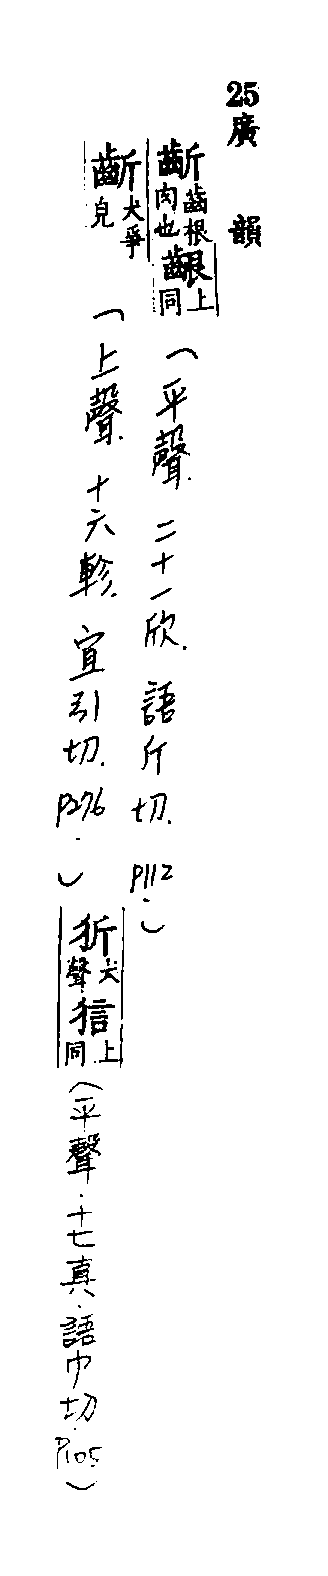 25 廣韻
齗齒根肉也齦上同(平聲.二十一欣.語斤切.P112.)
齗犬爭皃(上聲.十六軫.宜引切.P276.)㹞犬聲狺上同(平聲.十七真.語巾切.P105)